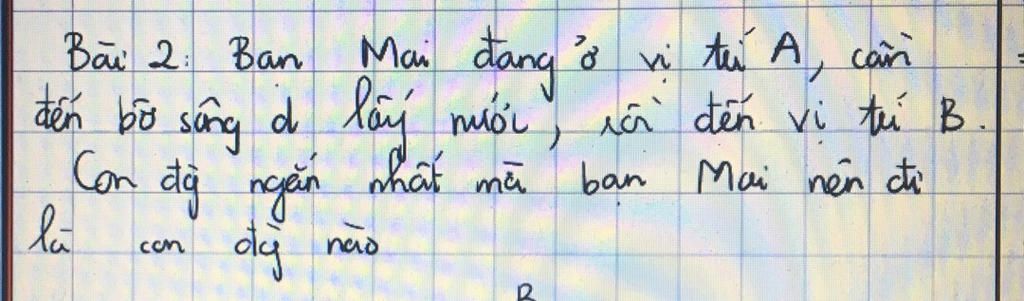 Bài 2: Bạn Mai đang ở vị trí A, cần
đến bờ sông d lấy nước, rồi đến vị trí B.
Con đg ngắn nhất mà bạn Mai nên đi
là con đg nào
B